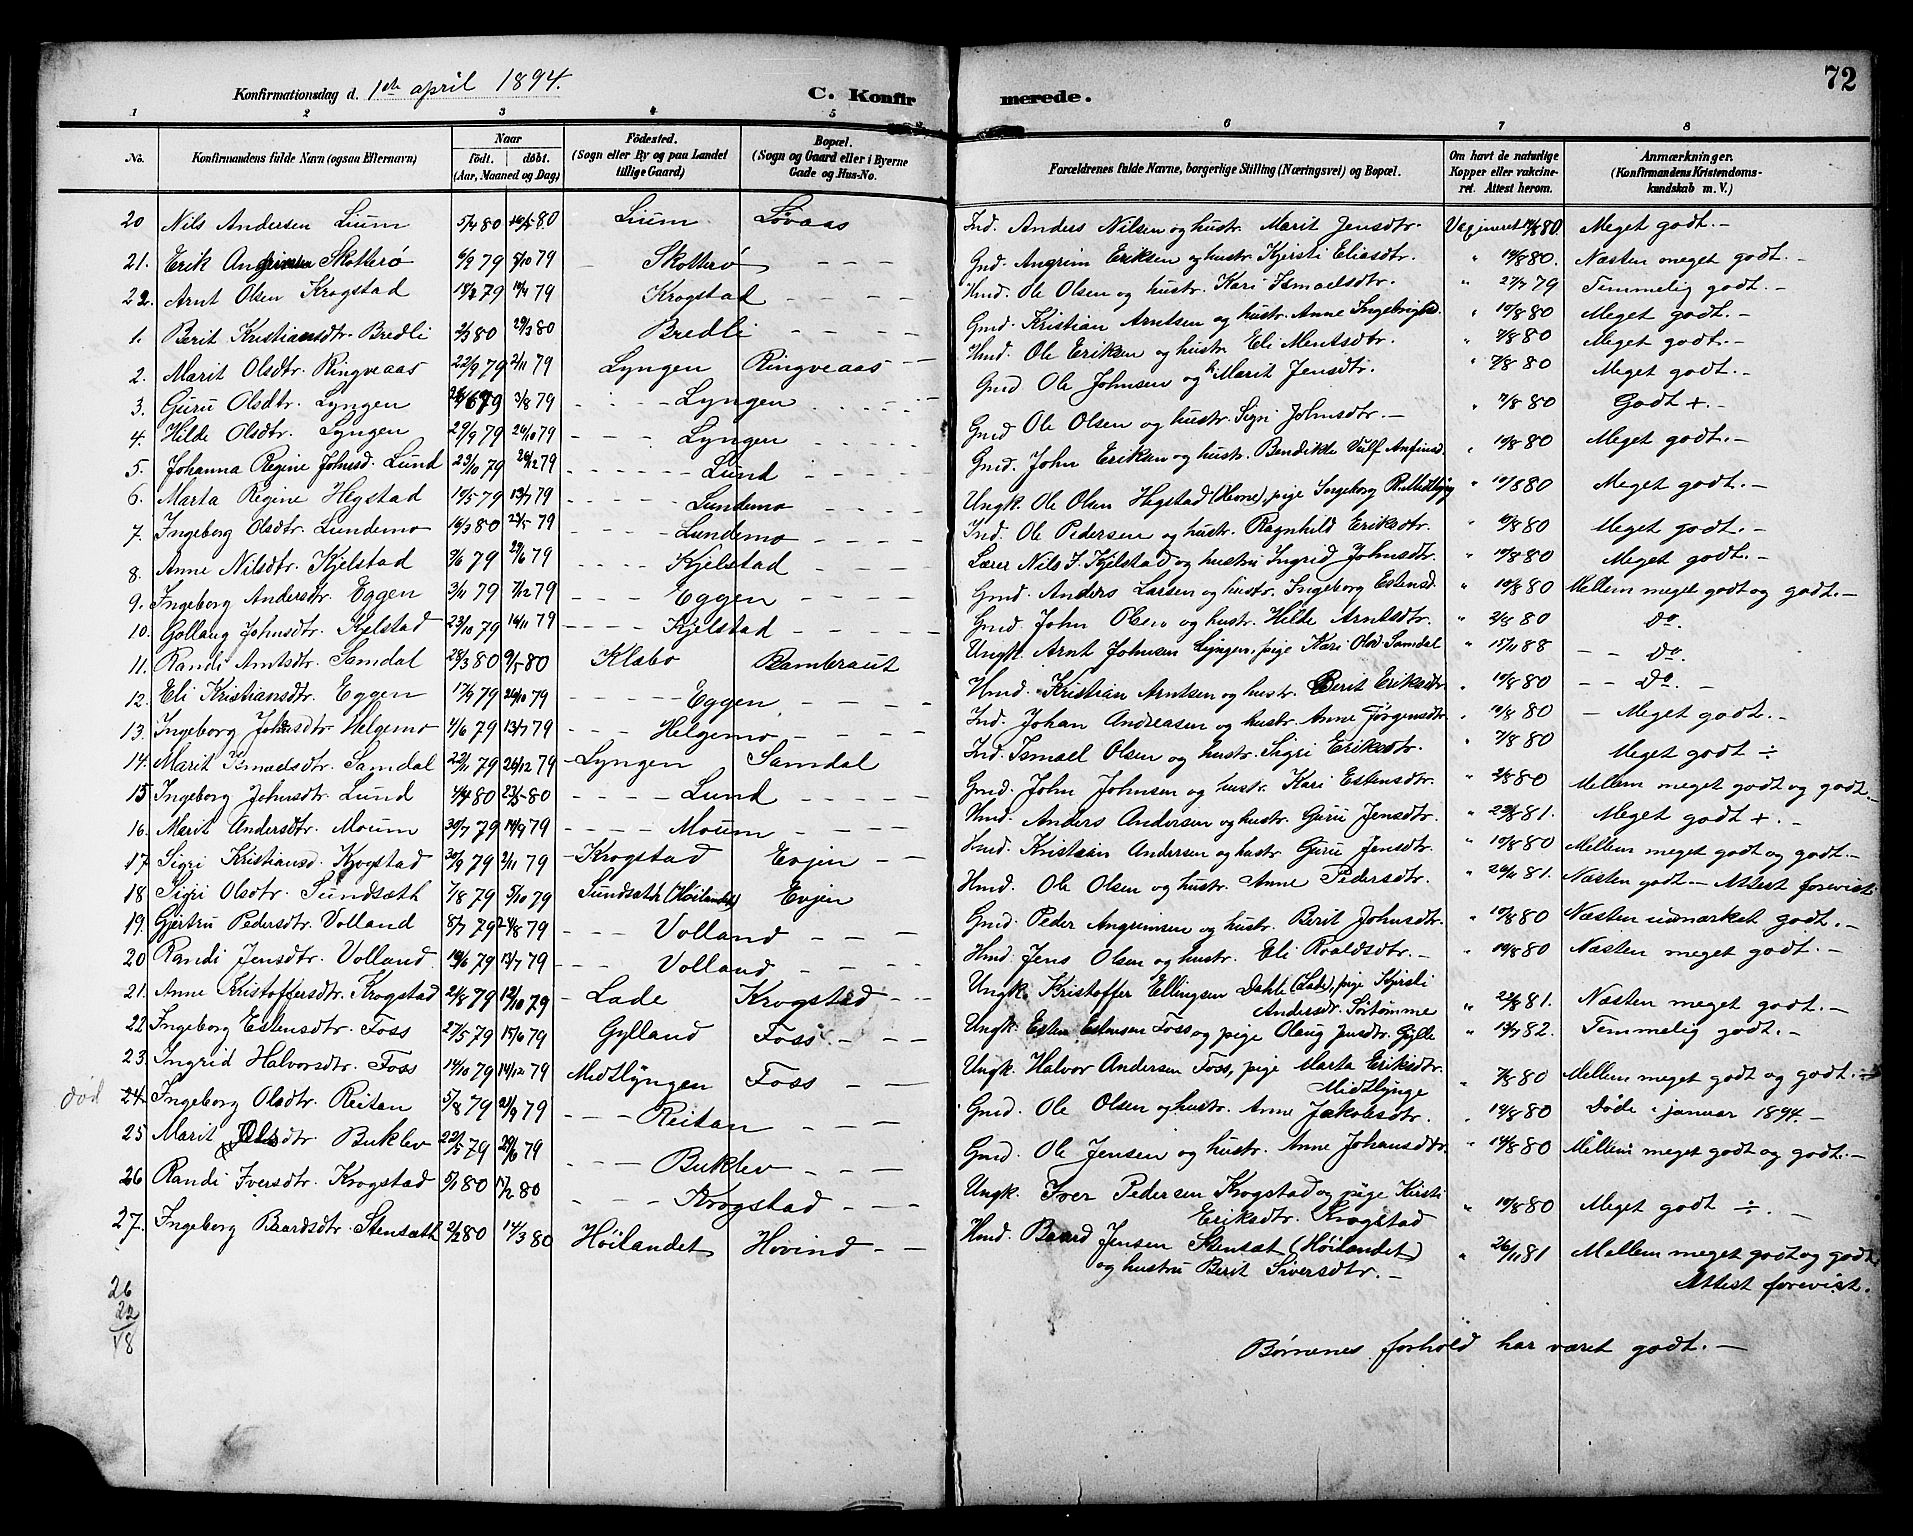 72
Konfirmationsdag d. 1ste april 1894. C. Konfirmerede.
1 2 3 4 5 6 7 8
No. Konfirmandens fulde Navn (ogsaa Efternavn) Naar født. døbt. (Aar, Maaned og Dag) Fødested. (Sogn eller By og paa Landet tillige Gaard) Bopæl. (Sogn og Gaard eller i Byerne Gade og Hus-No. Forældrenes fulde Navne, borgerlige Stilling (Næringsvei) og Bopæl. Om havt de naturlige Kopper eller vakcineret. Attest herom. Anmærkninger. (Konfirmandens Kristendomskundskab m. V.)
20 Nils Andersen Lium 5/4 80 80 Lium Løvaas Ind. Anders Nilsen og hustr. Marit Jensdtr. Vacineret 80. Meget godt. —
21. Erik Angrimsen Skotterø 6/9 79 5/10 79 — Skotterø — — — Gmd. Angrim Eriksen og hustr. Kjersti Eliasdtr. " 10/8 80. Næsten meget godt. —
22. Arnt Olsen Krogstad 18/2 79 14/4 79 — Krogstad — — — Hmd. Ole Olsen og hustr. Kari Ismaelsdtr. " 27/7 79 Temmelig godt. —
1. Berit Kristiansdtr. Bredli 2/3 80 29/3 80 Bredli — — — Gmd. Kristian Arntsen og hustr. Anne Ingebrigtsd. " 10/8 80 Meget godt. —
2. Marit Olsdtr. Ringveaas 22/9 79 2/11 79 Lyngen Ringveaas Hmd. Ole Eriksen og hustr. Eli Mentsdtr. " 7/8 80 Meget godt. —
3. Guru Olsdtr. Lyngen 79 3/8 79 — — Lyngen — — — Gmd. Ole Johnsen og h. Marit Jensdtr. " 7/8 80 Meget godt. —
4. Hilde Olsdtr. Lyngen 29/9 79 26/10 79 — — — Lyngen — — — Gmd Ole Olsen og hustr. Sigri Johnsdtr. — " 7/8 80 Godt +. —
5. Johanna Regine Johnsd. Lund 23/10 79 26/12 79 — — — Lund — — — Gmd. John Eriksen og hustr. Bendikte Vulf Anfinsd. " 10/8 80 Meget godt. —
6. Marta Regine Hegstad 19/5 79 13/7 79 — — — Lundemo — — — Ungk. Ole Olsen Hegstad (Horne), pige Ingeborg " 10/8 80 Meget godt. —
7. Ingeborg Olsdtr. Lundemo 16/3 80 23/5 79 — — — Lundemo — — — Ind. Ole Pedersen og hustr. Ragnhild Eriksdtr. " 10/8 80 Meget godt. —
8. Anne Nilsdtr. Kjelstad 9/6 79 29/6 79 — — — Kjelstad Lærer Nils J. Kjelstad og hustru Ingrid Johnsdtr. " 10/8 80 Meget godt. —
9. Ingeborg Andersdtr. Eggen 3/11 79 7/12 79 — — — Eggen — — — Gmd. Anders Larsen og hustr. Ingeborg Estensd. " 10/8 80 Mellem meget godt og godt. —
10. Gollaug Johnsdtr. Kjelstad 23/10 79 16/11 79 — — — Kjelstad — — — Gmd. John Olsen og hustr. Hilde Arntsdtr. " 2/8 80 Do.
11. Randi Arntsdtr. Samdal 28/3 80 9/5 80 Klæbo Rambraut Ungk. Arnt Johnsen Lyngen, pige Kari Olsd Samdal " 15/11 88 — — Do.
12. Eli Kristiansdtr. Eggen 17/9 79 26/10 79 — — — Eggen — — — Hmd. Kristian Arntsen og hustr. Berit Eriksdtr. " 10/8 80 — — Do. —
13. Ingeborg Johansdtr. Helgemo 4/6 79 13/7 79 — — — Helgemo — — — Ind. Johan Andreasen og hustr. Anne Jørgensdtr. " 10/8 80 — Meget godt. —
14. Marit Ismaelsdtr. Samdal 22/11 79 26/12 79 — Lyngen Samdal Ind. Ismael Olsen og hustr. Sigri Eriksdtr. " 7/8 80 Meget godt ÷
15 Ingeborg Johnsdtr. Lund 4/4 80 23/5 80 — — — Lund — — — Gmd. John Johnsen og hustr. Kari Estensdtr. " 2/8 80 Mellem meget godt og godt. —
16. Marit Andersdtr. Moum 30/7 79 14/9 79 — — — Moum — — — Hmd. Anders Andersen og hustr. Guru Jensdtr. " 81. Meget godt +. —
17 Sigri Kristiansd. Krogstad 30/9 79 2/11 79 — Krogstad Evjen — — Hmd. Kristian Andersen og hustr Guru Jensdtr. " 10/8 80 Mellem meget godt og godt. —
18 Sigri Olsdtr. Sundsæth 7/8 79 5/10 79 Sundsæth (Høilandet) Evjen Hmd. Ole Olsen og hustr. Anne Pedersdtr. " 20/11 81. Næsten godt — Attest forevist
19. Gjertru Pedersdtr. Volland 8/7 79 24/8 79 — — — Volland — — — Gmd. Peder Angrimsen og hustr. Berit Johnsdtr. " 10/8 80 Næsten udmærket godt. —
20 Randi Jensdtr. Volland. 10/6 79 13/7 79 — — Volland — — — Hmd. Jens Olsen og hustr. Eli Roaldsdtr. — " 10/8 80 Næsten meget godt. —
21. Anne Kristoffersdtr. Krogstad 21/8 79 12/10 79 — Lade Krogstad — — Ungk. Kristoffer Ellingsen Dahle (Lade), pige Kjersti
Andersdtr. Sørtømme " 22/8 81. Næsten meget godt. —
22 Ingeborg Estensdtr. Foss 27/5 79 15/6 79 Gylland Foss — — — Ungk. Esten Estensen Foss og pige Oleug Jensdtr. Gylle " 13/7 82. Temmelig godt. —
23. Ingrid Halvorsdtr. Foss 14/10 79 14/12 79 Midtlyngen Foss — — Ungk. Halvor Andersen Foss, pige Marta Eriksdtr.
Midtlynge " 7/8 80 Mellem meget godt og godt. —
død 24. Ingeborg Olsdtr. Reitan 5/8 79 21/9 79 — — — Reitan — — — Gmd. Ole Olsen og hustr. Anne Jakobsdtr. " 10/8 80 Døde i januar 1894. —
25 Marit Olsdtr Buklev 22/5 79 29/6 79 — — — Buklev — — — Gmd. Ole Jensen og hustr. Anne Johansdtr. " 10/8 80 Mellem meget godt og godt. —
26 Randi Iversdtr. Krogstad 5/1 80 17/2 80 — — — Krogstad — — Ungk. Iver Pedersen Krogstad og pige Kirsti
Eriksdtr. Krogstad " 10/8 80 Meget godt ÷. —
27. Ingeborg Baardsdtr. Stensæth 2/2 80 14/3 80 Høilandet Hovind — — Hmd. Baard Jensen Stensæt (Høilandet)
og hustru Berit Siversdtr. — " 26/11 81 Mellem meget godt og godt
Attest forevist.
26
22
48
Børnenes forhold har været godt. —